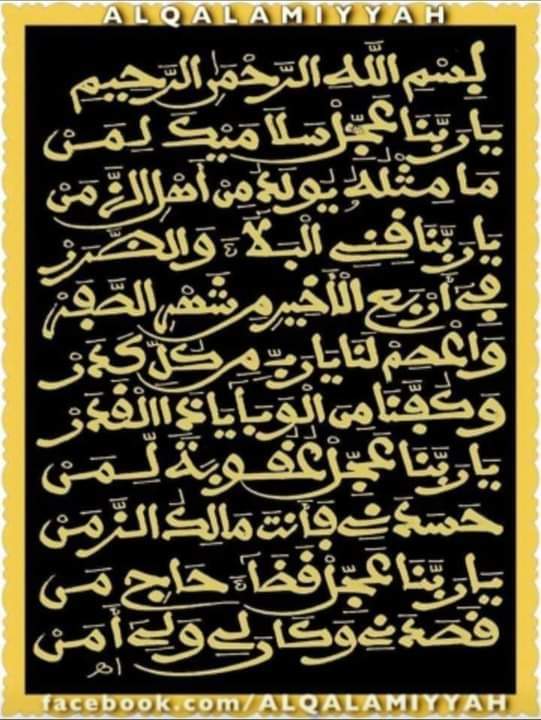 ALQALAMIYYAH
بِسْمِ اللَّهِ الرَّحْمَٰنِ الرَّحِيمِ
يَا رَبَّنَا عَجِّلْ سَلَامَيْكَ لِمَنْ
مَا مِثْلُهُ يُولَدُ مِنْ أَهْلِ الزَّمَنْ
يَا رَبَّنَا قِنِي الْبَلَاءَ وَالضَّرَرْ
فِي أَرْبَعِ الْأَخِيرِ مِنْ شَهْرِ الصَّفَرْ
وَاعْصِمْ لَنَا يَا رَبِّ مِنْ كُلِّ كَدَرْ
وَكَفِّنَا مِنَ الْوَبَا يَا ذَا الْقَدَرْ
يَا رَبَّنَا عَجِّلْ عُقُوبَةً لِمَنْ
حَسَدَنِي فَأَنْتَ مَالِكُ الزَّمَنْ
يَا رَبَّنَا عَجِّلْ قَضَاءَ حَاجِ مَنْ
قَصَدَنِي وَكَانَ لِي وَلِي أَمَنْ
اهـ
facebook.com/ALQALAMIYYAH